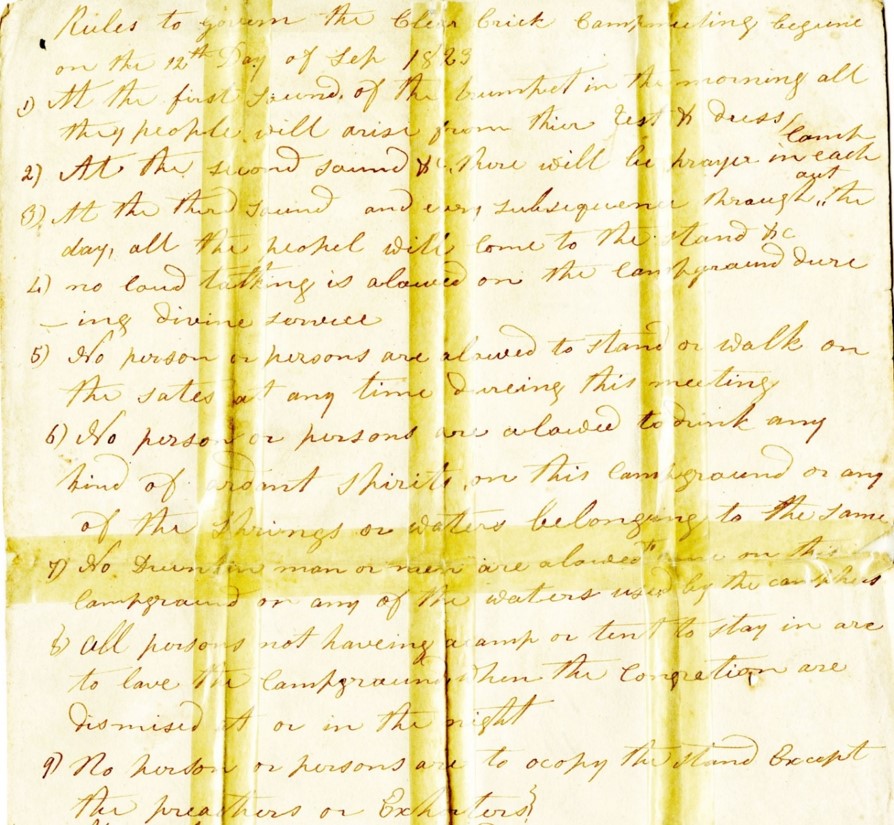 Rules to govern the Clear Crick Campmeeting begune
on the 12th Day of Sep 1823
1) At the first sound of the trumpet in the morning all
they people will arise from thier rest & dress
2) At the second sound &c, there will be prayer in each camp
3) At the third sound and every subsequence through out the
day, all the peopel will come to the stand &c
4) no loud talking is alowed on the Campground dure
-ing divine service
5) No person or persons are alowed to stand or walk on
the sates at any time dureing this meeting
6) No person or persons are alowed to drink any
kind of ardent spirits on this Campground or any
of the springs or waters belonging to the same
7) No Drunken man or men are alowed to on this
Campground or any of the waters used by the
8) All persons not haveing a camp or tent to stay in are
to lave the Campground when the Congretion are
dismised at or in the night
9) No person or persons are to ocopy the stand Except
the preachers or Exhorters